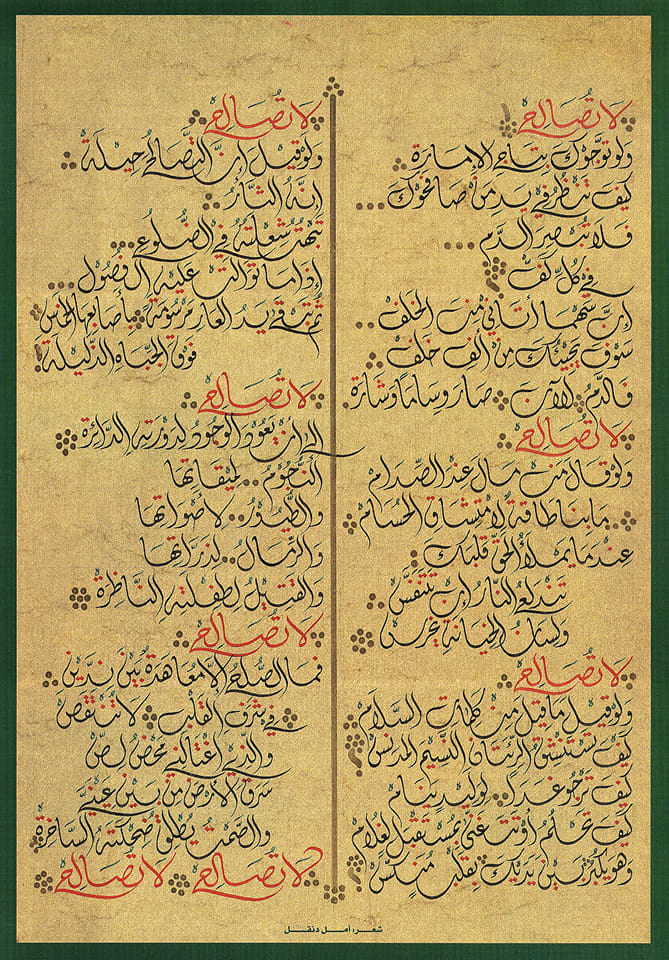 لا تصالح !
ولو توّجوك بتاج الإمارة
كيف تنظر في يد من صافحوك ...
فلا تبصر الدم ...
في كل كفّ ؟
إنّ سهما أتاني من الخلف ...
سوف يجيئك من ألف خلف
فالدم الآن صار وساما وشارة .
لا تصالح
ولو قال من مال عند الصدام
ما بنا طاقة لامتشاق الحسام
عندما يملأ الحق قلبك
تندلع النار إن تتنفّس
ولسان الخيانة يخرس
لا تصالح
ولو قيل ما قيل من كلمات السلام
كيف تستنشق الرئتان النسيم المدنّس ؟
كيف ترجو غدا .. لوليد ينام
كيف تحلم أو تتغنى بمستقبل لغلام
وهو يكبر بين يديك بقلب منكّس ؟
لا تصالح
ولو قيل إنّ التصالح حيلة
إنه الثأر
تبهت شعلته في الضلوع ...
إذا ما توالت عليها الفصول ...
ثم تبقى يد العار مرسومة بأصابعها الخمس
فوق الجباه الذليلة !
لا تصالح
إلى أن يعود الوجود لدورته الدائرة
النجوم .. لميقاتها
والطيور .. لأصواتها
والرمال .. لذراتها
والقتيل لطفلته الناظرة
لا تصالح
فما الصلح إلا معاهدة بين ندّين
في شرف القلب لا تنتقص
والذي اغتالني محض لصّ
سرق الأرض من بين عينيّ
والصمت يطلق ضحكته الساخرة !
لا تصالح لا تصالح
شعر : أمل دنقل